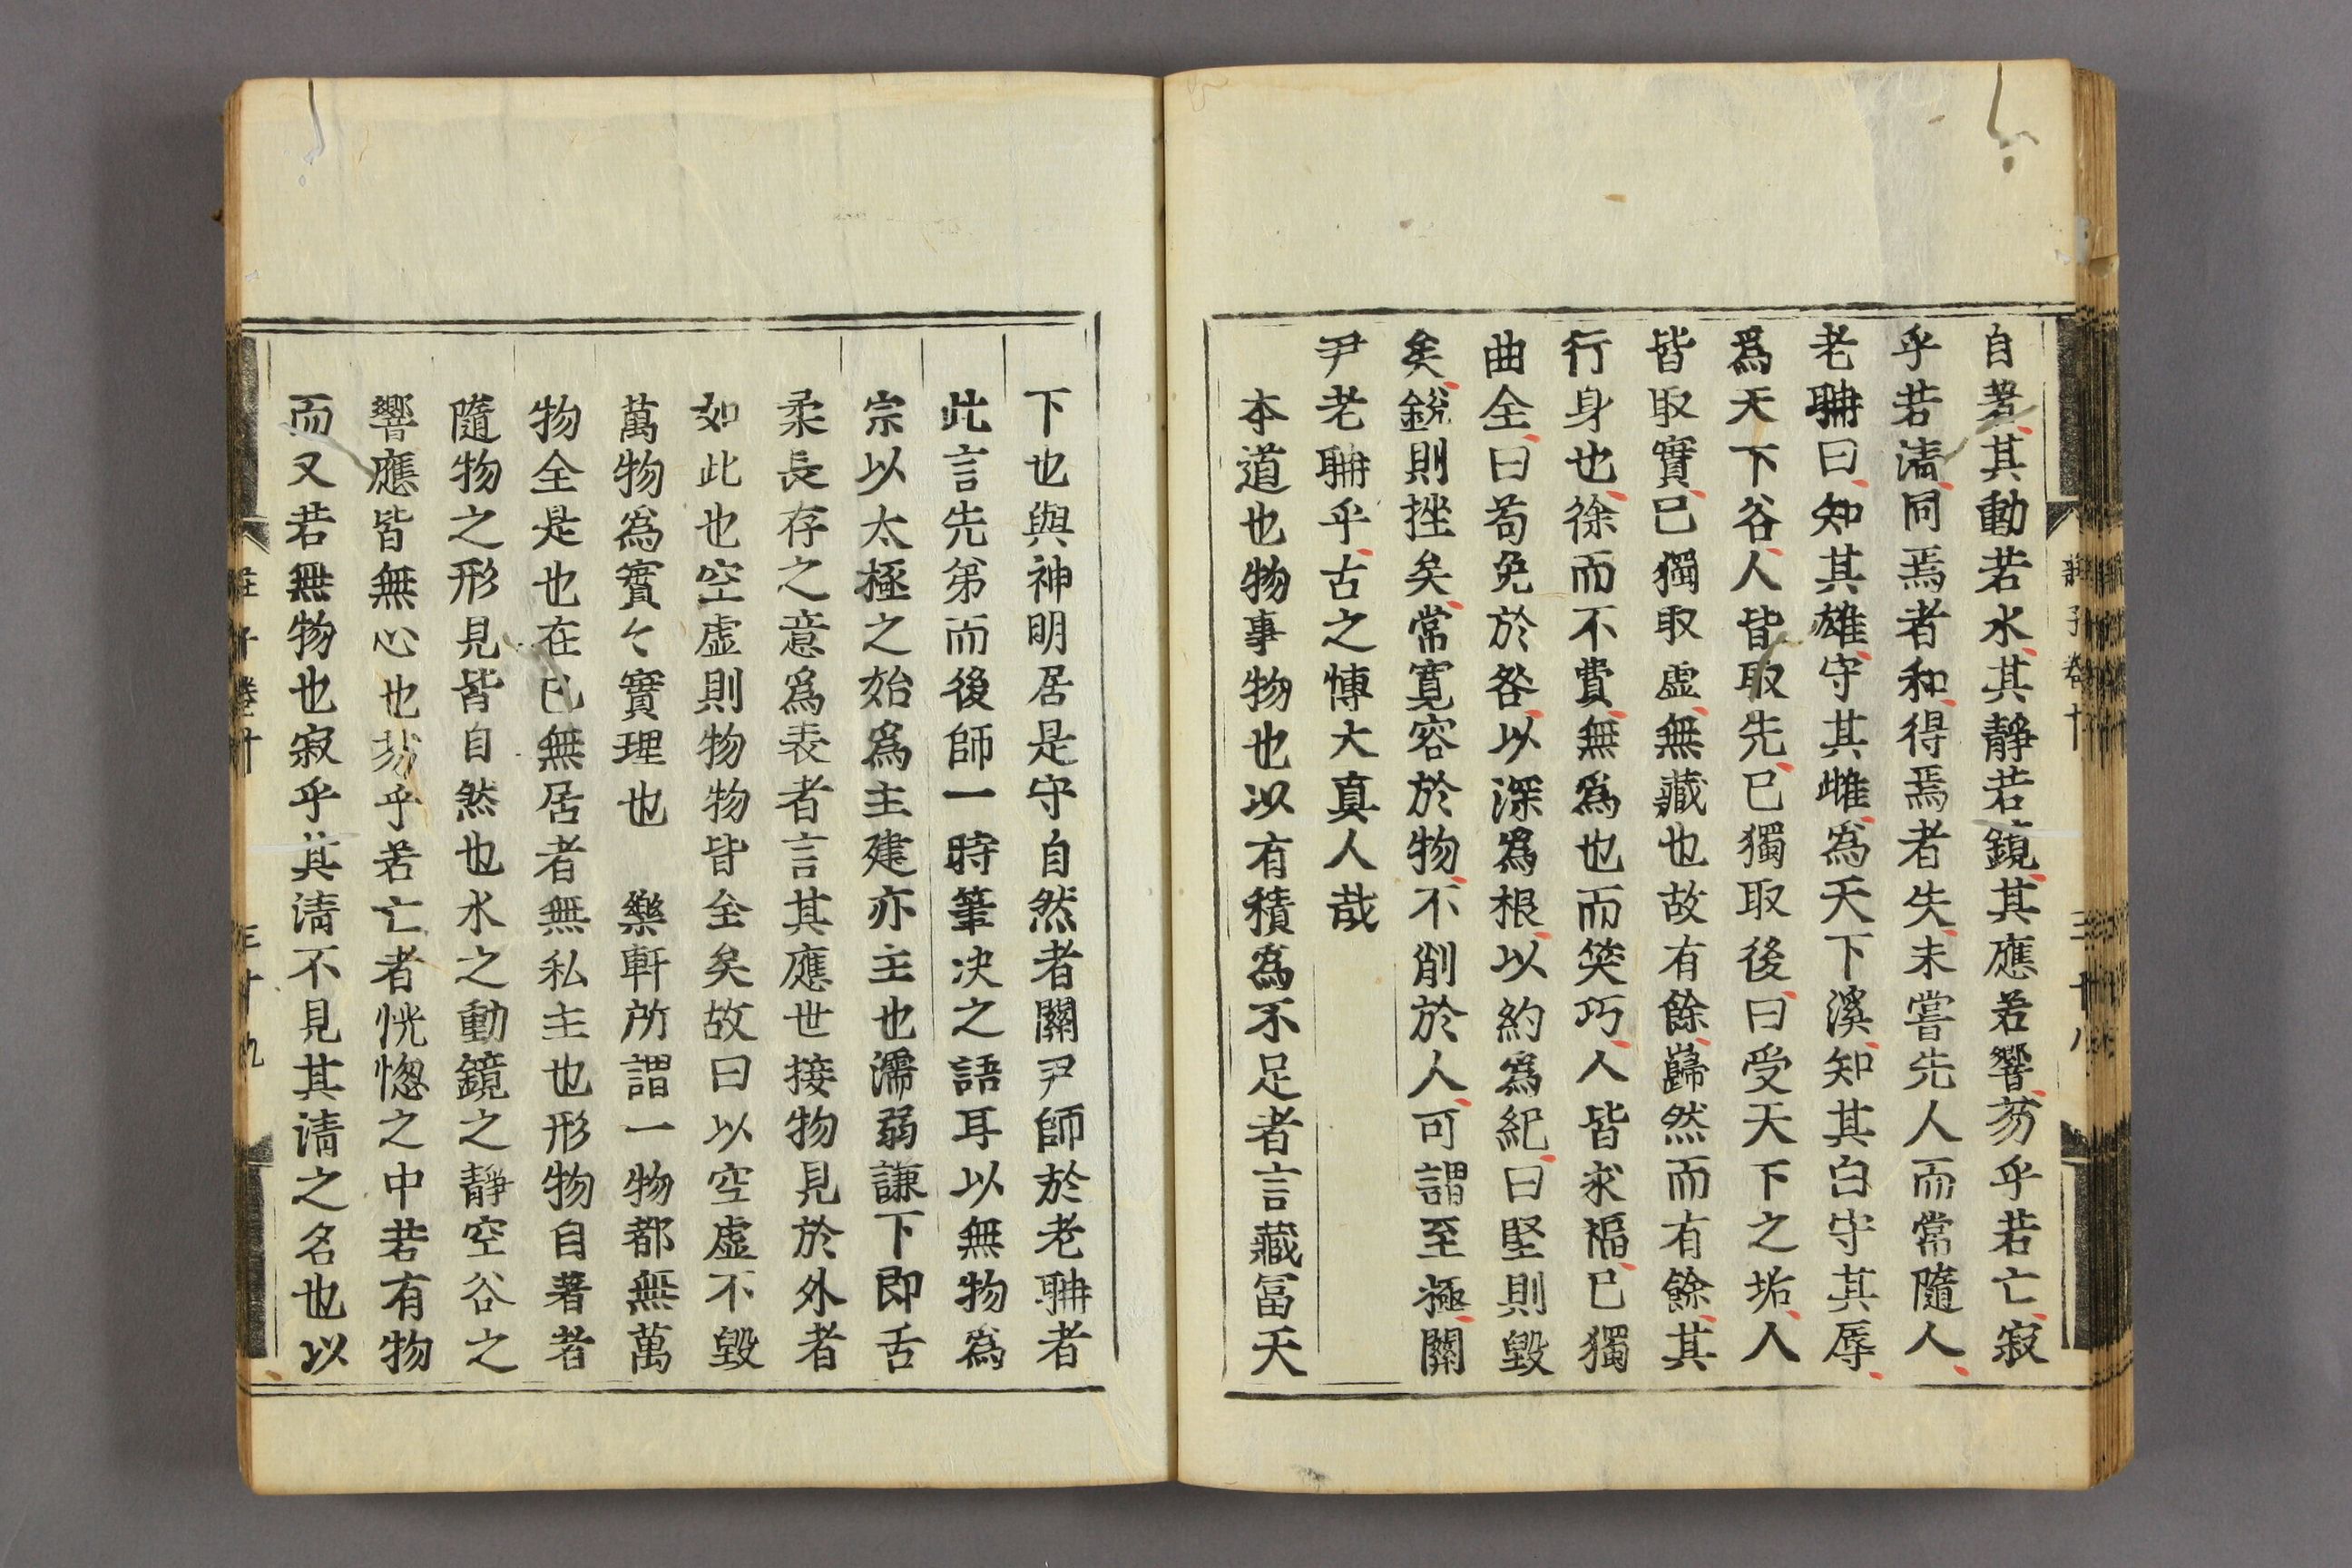 自著其動若水其靜若鏡其應若響芴乎若亡寂
乎若淸同焉者和得焉者失未嘗先人而常隨人
老聃曰知其雄守其雌爲天下溪知其白守其辱
爲天下谷人皆取先已獨取後曰受天下之垢人
皆取實已獨取虛無藏也故有餘巋然而有餘其
行身也徐而不費無爲也而笑巧人皆求福已獨
曲全曰苟免於咎以深爲根以約爲紀曰堅則毀
矣銳則挫矣常寬容於物不削於人可謂至極關
尹老聃乎古之博大真人哉
本道也物事物也以有積爲不足者言藏冨天
莊子卷十
三十八
下也與神明居是守自然者關尹師於老聃者
此言先第而後師一時筆决之語耳以無物爲
宗以太極之始爲主建亦主也濡弱謙下即舌
柔長存之意爲表者言其應世接物見於外者
如此也空虛則物物皆全矣故曰以空虛不毀
萬物爲實々實理也 樂軒所謂一物都無萬
物全是也在已無居者無私主也形物自著者
隨物之形見皆自然也水之動鏡之靜空谷之
響應皆無心也芴乎若亡者恍惚之中若有物
而又若無物也寂乎其淸不見其淸之名也以
莊子卷十
三十九